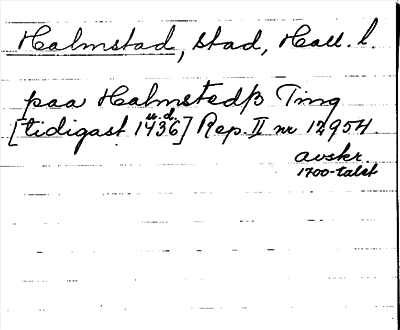 Halmstad, stad, Hall. l.
paa Halmstedß Ting
u.d.
[tidigast 1436] Rep. II nr 12954.
avskr.
1700-talet